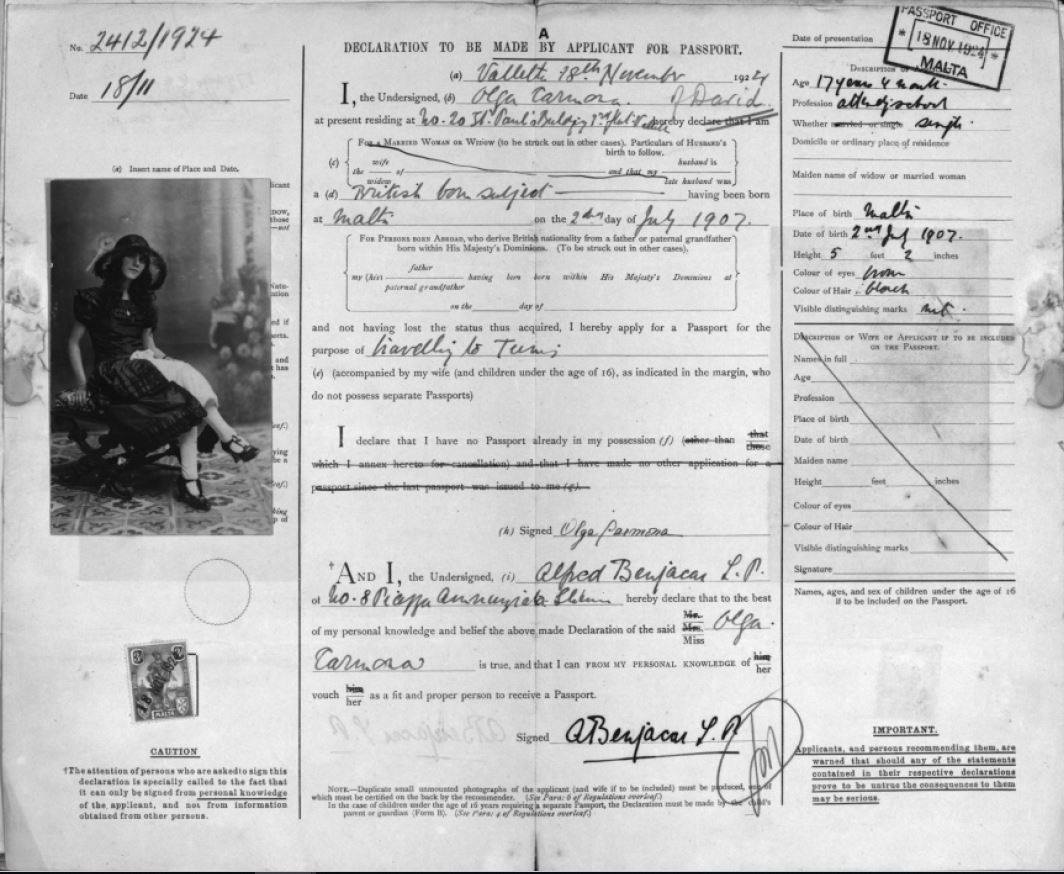 No. 2412/1924
Date 18/11
(a) Insert name of Place and Date.
CAUTION
†The attention of persons who are asked to sign this
declaration is specially called to the fact that
it can only be signed from personal knowledge
of the applicant, and not from information
obtained from other persons.
A
DECLARATION TO BE MADE BY APPLICANT FOR PASSPORT.
(a) Valletta 18th November 1924
I, the Undersigned, (b) Olga Carmona. of David
at present residing at No. 20 St. Paul's hereby declare that I am
FOR A MARRIED WOMAN OR WIDOW (to be struck out in other cases). Particulars of HUSBAND'S
birth to follow.
wife husband is
(c) the of and that my
widow late husband was
a (d) British born subject having been born
at Malta on the 2nd day of July 1907.
FOR PERSONS BORN ABROAD, who derive British nationality from a father or paternal grandfather
born within His Majesty's Dominions. (To be struck out in other cases).
father
my (his) having been born within His Majesty's Dominions at
paternal grandfather
on the day of
and not having lost the status thus acquired, I hereby apply for a Passport for the
purpose of travelling to Tunis
(e) (accompanied by my wife (and children under the age of 16), as indicated in the margin, who
do not possess separate Passports)
I declare that I have no Passport already in my possession (f) (other than that
those
which I annex hereto for cancellation) and that I have made no other application for a
passport since the last passport was issued to me (g).
(h) Signed Olga Carmona
†AND I, the Undersigned, (i) Alfred Benjacar L. P.
of No. 8 Piazza Annunziata Sliema hereby declare that to the best
of my personal knowledge and belief the above made Declaration of the said Mr. Mrs. Miss Olga
Carmona is true, and that I can FROM MY PERSONAL KNOWLEDGE of him
her
vouch him as a fit and proper person to receive a Passport.
her
Signed ABenjacar L. P.
NOTE.—Duplicate small unmounted photographs of the applicant (and wife if to be included) must be produced, one of
which must be certified on the back by the recommender. (See Para: 6 of Regulations overleaf.)
in the case of children under the age of 16 years requiring a separate Passport, the Declaration must be made by the child's
parent or guardian (Form B). (See Para: 4 of Regulations overleaf.)
Date of presentation
PASSPORT OFFICE
* 18 NOV. 1924 *
MALTA
DESCRIPTION OF
Age 17 years 4 months
Profession attending school
Whether married or single single
Domicile or ordinary place of residence
Maiden name of widow or married woman
Place of birth Malta
Date of birth 2nd July 1907.
Height 5 feet 2 inches
Colour of eyes brown
Colour of Hair black
Visible distinguishing marks
DESCRIPTION OF WIFE OF APPLICANT IF TO BE INCLUDED
ON THE PASSPORT.
Names in full
Age
Profession
Place of birth
Date of birth
Maiden name
Height feet inches
Colour of eyes
Colour of Hair
Visible distinguishing marks
Signature
Names, ages, and sex of children under the age of 16
if to be included on the Passport.
IMPORTANT.
Applicants, and persons recommending them, are
warned that should any of the statements
contained in their respective declarations
prove to be untrue the consequences to them
may be serious.
MALTA